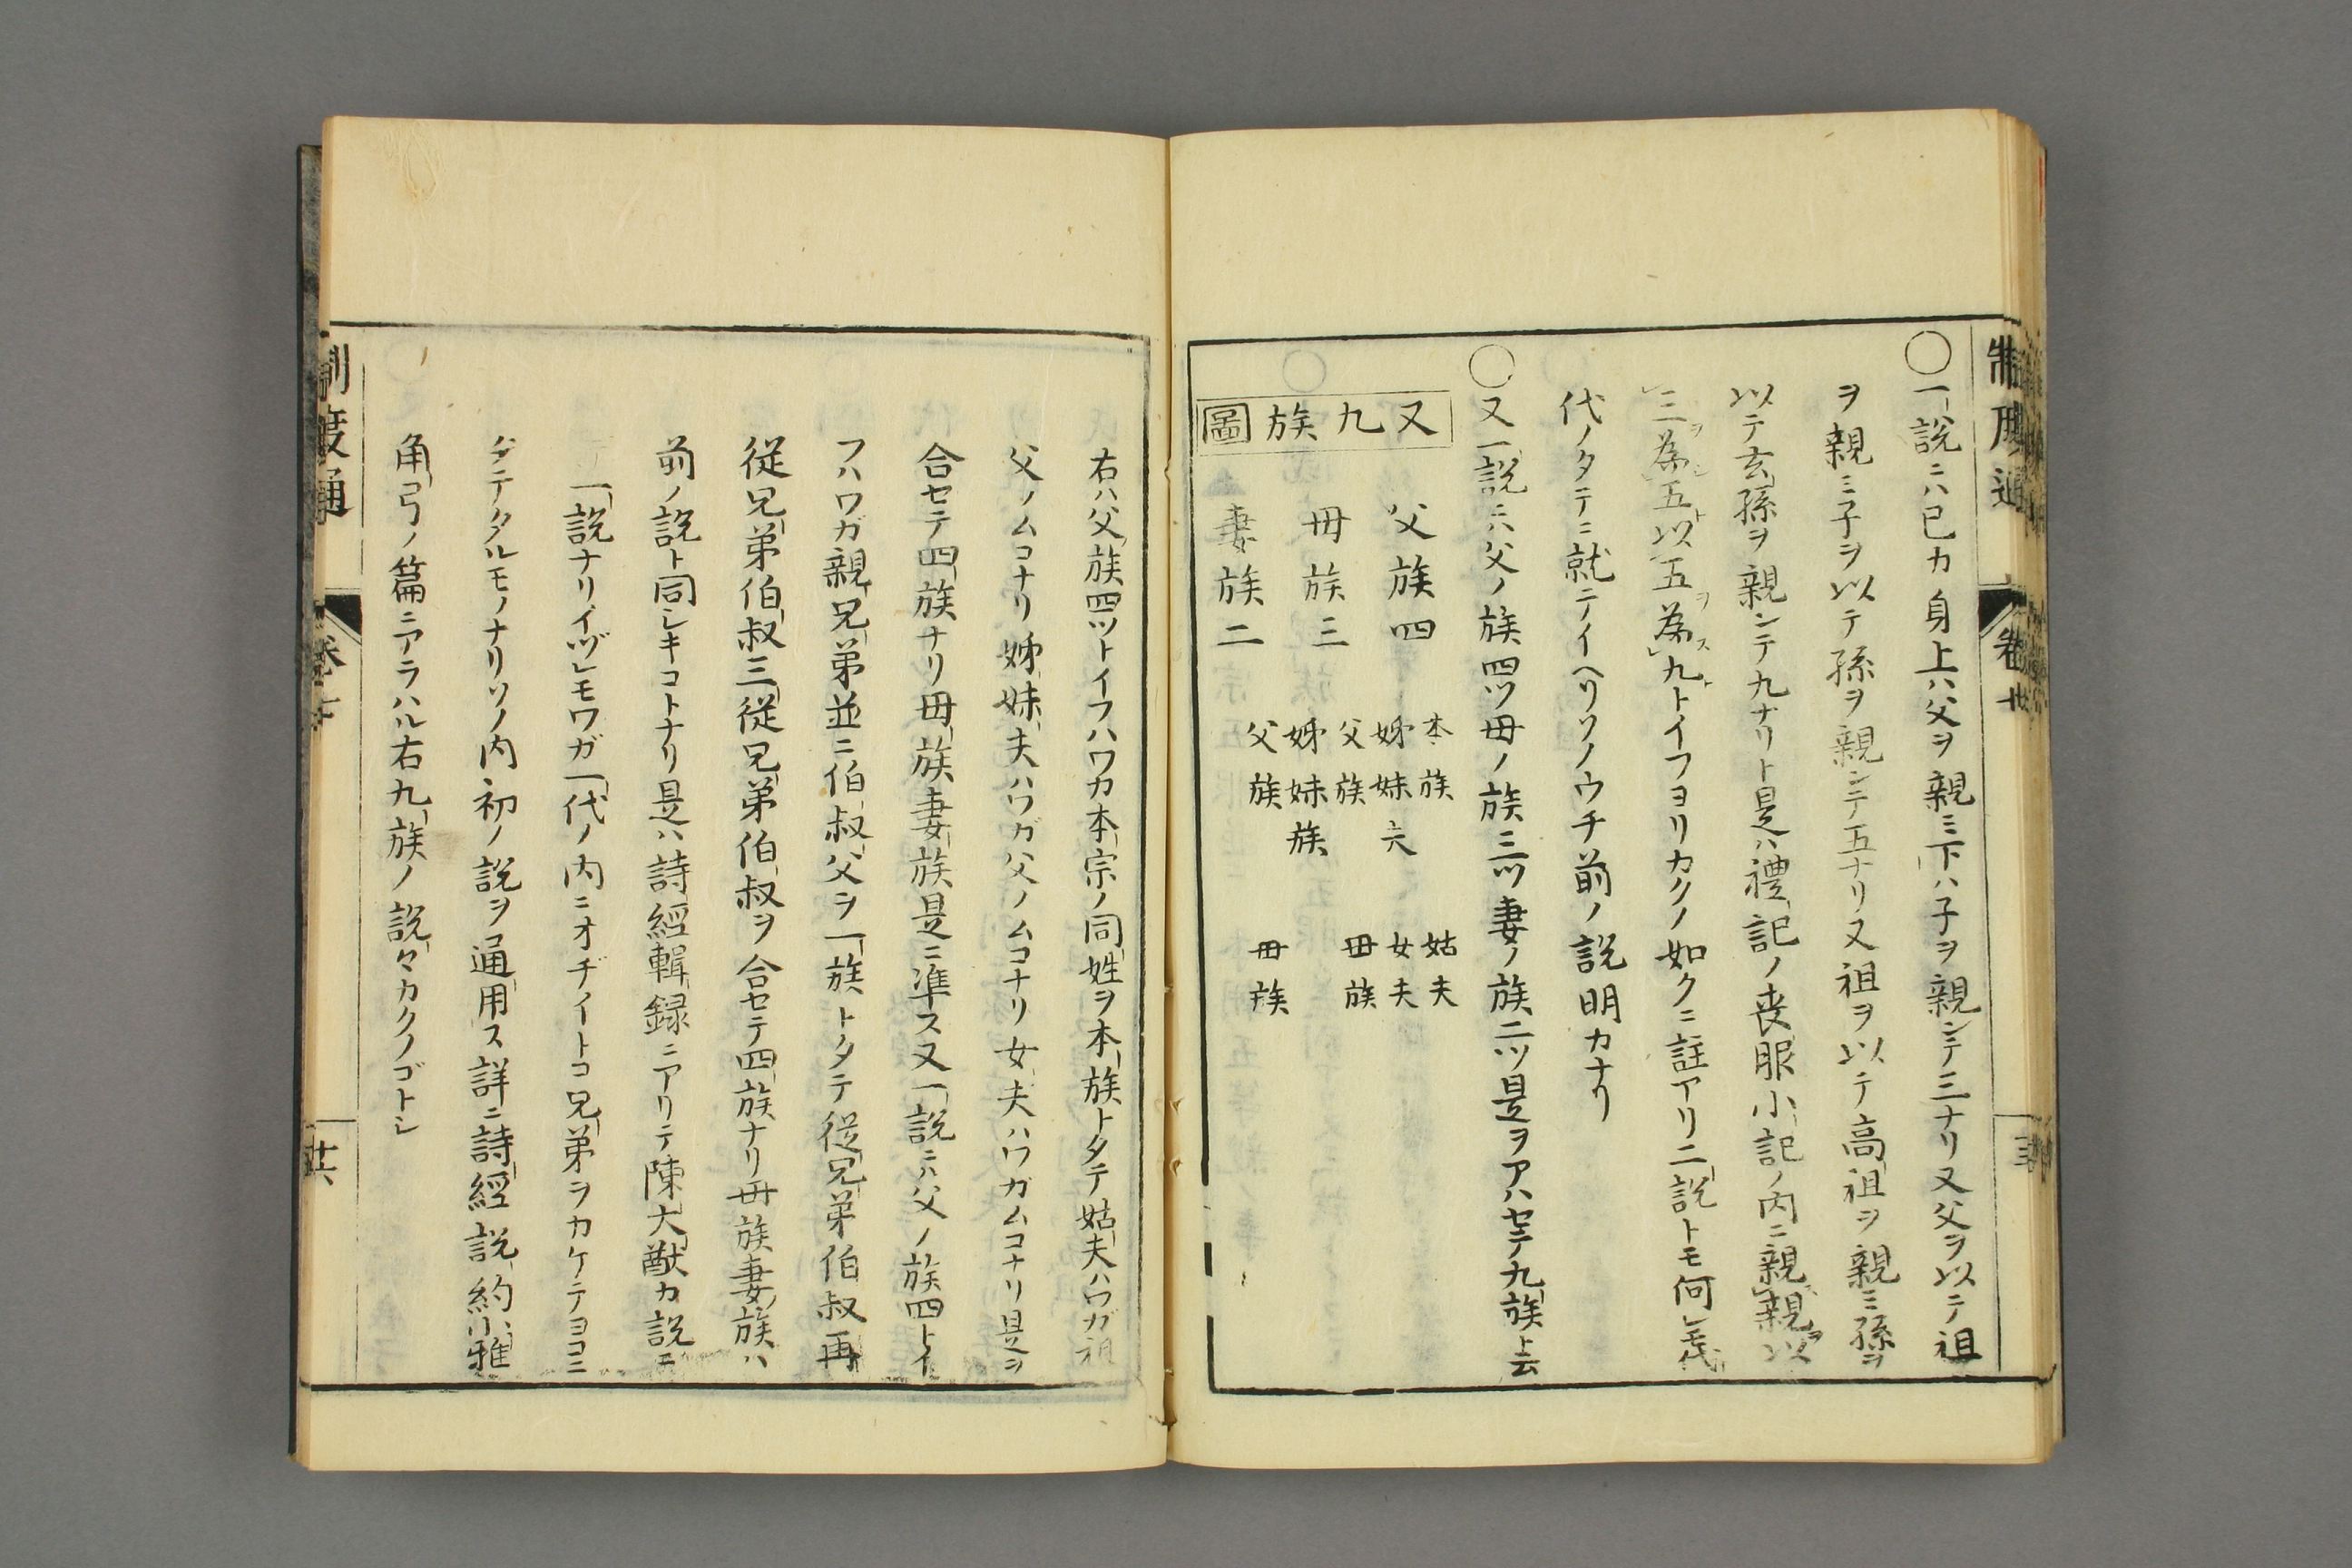 ○一說ニハ已カ身上ハ父ヲ親ミ下ハ子ヲ親シテ三ナリ又父ヲ以テ祖
ヲ親ミ子ヲ以テ孫ヲ親シテ五ナリ又祖ヲ以テ高祖ヲ親ミ孫ヲ
以テ玄孫ヲ親シテ九ナリト是ハ禮記ノ喪服小記ノ内ニ親親以
三為五以五為九トイフヨリカクノ如クニ註アリ二說トモ何レモ
代ノタテニ就テイヘリソノウチ前ノ説明カナリ
○又一說ニハ父ノ族四ツ母ノ族三ツ妻ノ族二ツ是ヲアハセテ九族ト云
又九族圖
父族四 本族 姑夫 姊妹夫 女夫
母族三 父族 母族 姊妹族
妻族二 父族 母族
右ハ父族四ツトイフハワカ本宗ノ同姓ヲ本族トタテ姑夫ハワガ祖
父ノムコナリ姊妹夫ハワガ父ノムコナリ女夫ハワガムコナリ是ヲ
合セテ四族ナリ母族妻族是ニ準ス又一說ニハ父ノ族四トイ
フハワガ親兄弟並ニ伯叔父ヲ一族トタテ従兄弟伯叔再
従兄弟伯叔三従兄弟伯叔ヲ合セテ四族ナリ母族妻族ハ
前ノ説ト同シキコトナリ是ハ詩經輯録ニアリテ陳大猷カ説ニ
一說ナリイヅレモワガ一代ノ内ニオヂイトコ兄弟ヲカケテヨコニ
タテタルモノナリソノ内初ノ説ヲ通用ス詳ニ詩經說約小雅
角弓ノ篇ニアラハル右九族ノ説々カクノゴトシ
制度通
卷十
廿六